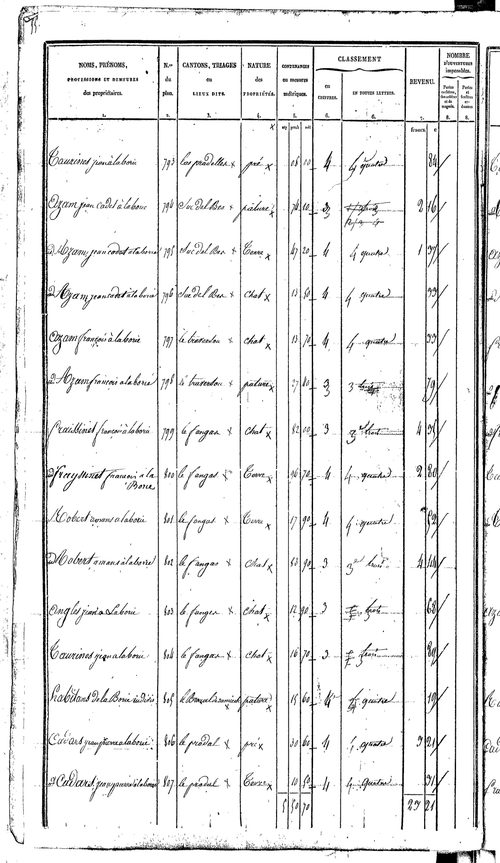 NOMS, PRÉNOMS, PROFESSIONS ET DEMEURES des propriétaires. N.os du plan. CANTONS, TRIAGES ou LIEUX DITS. NATURE des PROPRIÉTÉS. CONTENANCES EN MESURES métriques. CLASSEMENT en CHIFFRES. EN TOUTES LETTRES. REVENU. NOMBRE D'OUVERTURES imposables.
1. 2. 3. 4. 5. 6. 6. 7. 8. 8.
francs c
Taurines jean à laborie 793 las pradelles pré 08 00 4 4 quatre 84
Azam jean cadet à laborie 794 Suc del Bes pature 78 10 3 2 16
Azam jean cadet à laborie 795 Suc del Bes Terre 47 20 4 4 quatre 1 37
Azam jean cadet à laborie 796 Suc del Bes chat 13 50 4 4 quatre 33
Azam françois à laborie 797 le traversou chat 13 70 4 4 quatre 33
Azam françois à laborie 798 le traversou pature 27 80 3 3 79
Fraissinet françois à laborie 799 le fangas chat 82 00 3 3 trois 4 35
Frayssinet françois à la Borie 800 le fangas Terre 96 70 4 4 quatre 2 80
Robert amans à laborie 801 le fangas Terre 17 90 4 4 quatre 52
Robert amans à laborie 802 le fangas chat 83 90 3 3 trois 4 44
Angles jean à Laborie 803 le fangas chat 12 90 3 trois 68
Taurines jean à laborie 804 le fangas chat 16 70 3 trois 89
habitans de la Borie indivis 805 pature 15 60 4 quatre 19
Cadars jean pierre à laborie 806 le pradal pré 30 60 4 4 quatre 3 21
Cadars jean pierre à laborie 807 le pradal Terre 10 50 4 4 quatre 31
5 50 70 23 21